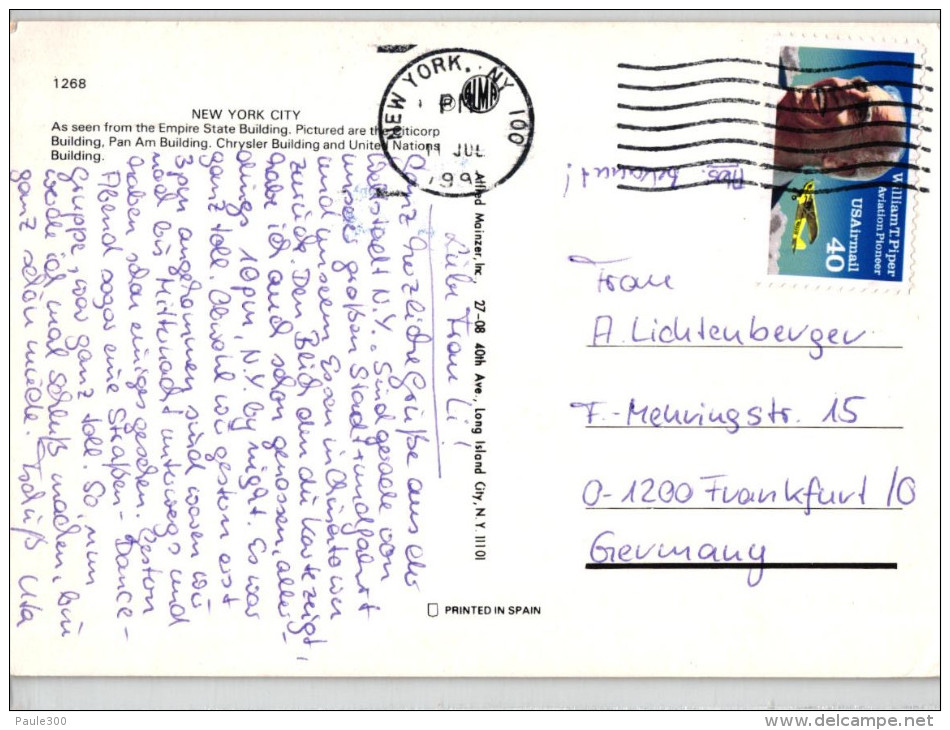 1268
NEW YORK CITY
As seen from the Empire State Building. Pictured are the Citicorp
Building, Pan Am Building. Chrysler Building and United Nations
Building.
NEW YORK, NY 100
PM
11 JUL
199
ALMA
William T. Piper
Aviation Pioneer
USAirmail
40
Abs. bekannt!
Liebe Frau Li!
Ganz herzliche Grüße aus der
Weltstadt N.Y. Sind gerade von
unserer großen Stadtrundfahrt
und unserem Essen in Chinatown
zurück. Den Blick den die Karte zeigt,
habe ich auch schon genossen, aller-
dings 10 pm, N.Y by night. Es war
ganz toll. Obwohl wir gestern erst
3 pm angekommen sind waren wir
noch bis Mitternacht unterwegs und
haben schon einiges gesehen. Gestern
Abend sogar eine Straßen-Dance-
Gruppe, war ganz toll. So, nun
werde ich mal Schluß machen, bin
ganz schön müde. Tschüß Uta
Alfred Mainzer, Inc. 27-08 40th Ave., Long Island City, N.Y. 11101
PRINTED IN SPAIN
Frau
A. Lichtenberger
F.-Mehringstr. 15
O-1200 Frankfurt /O
Germany
Paule300